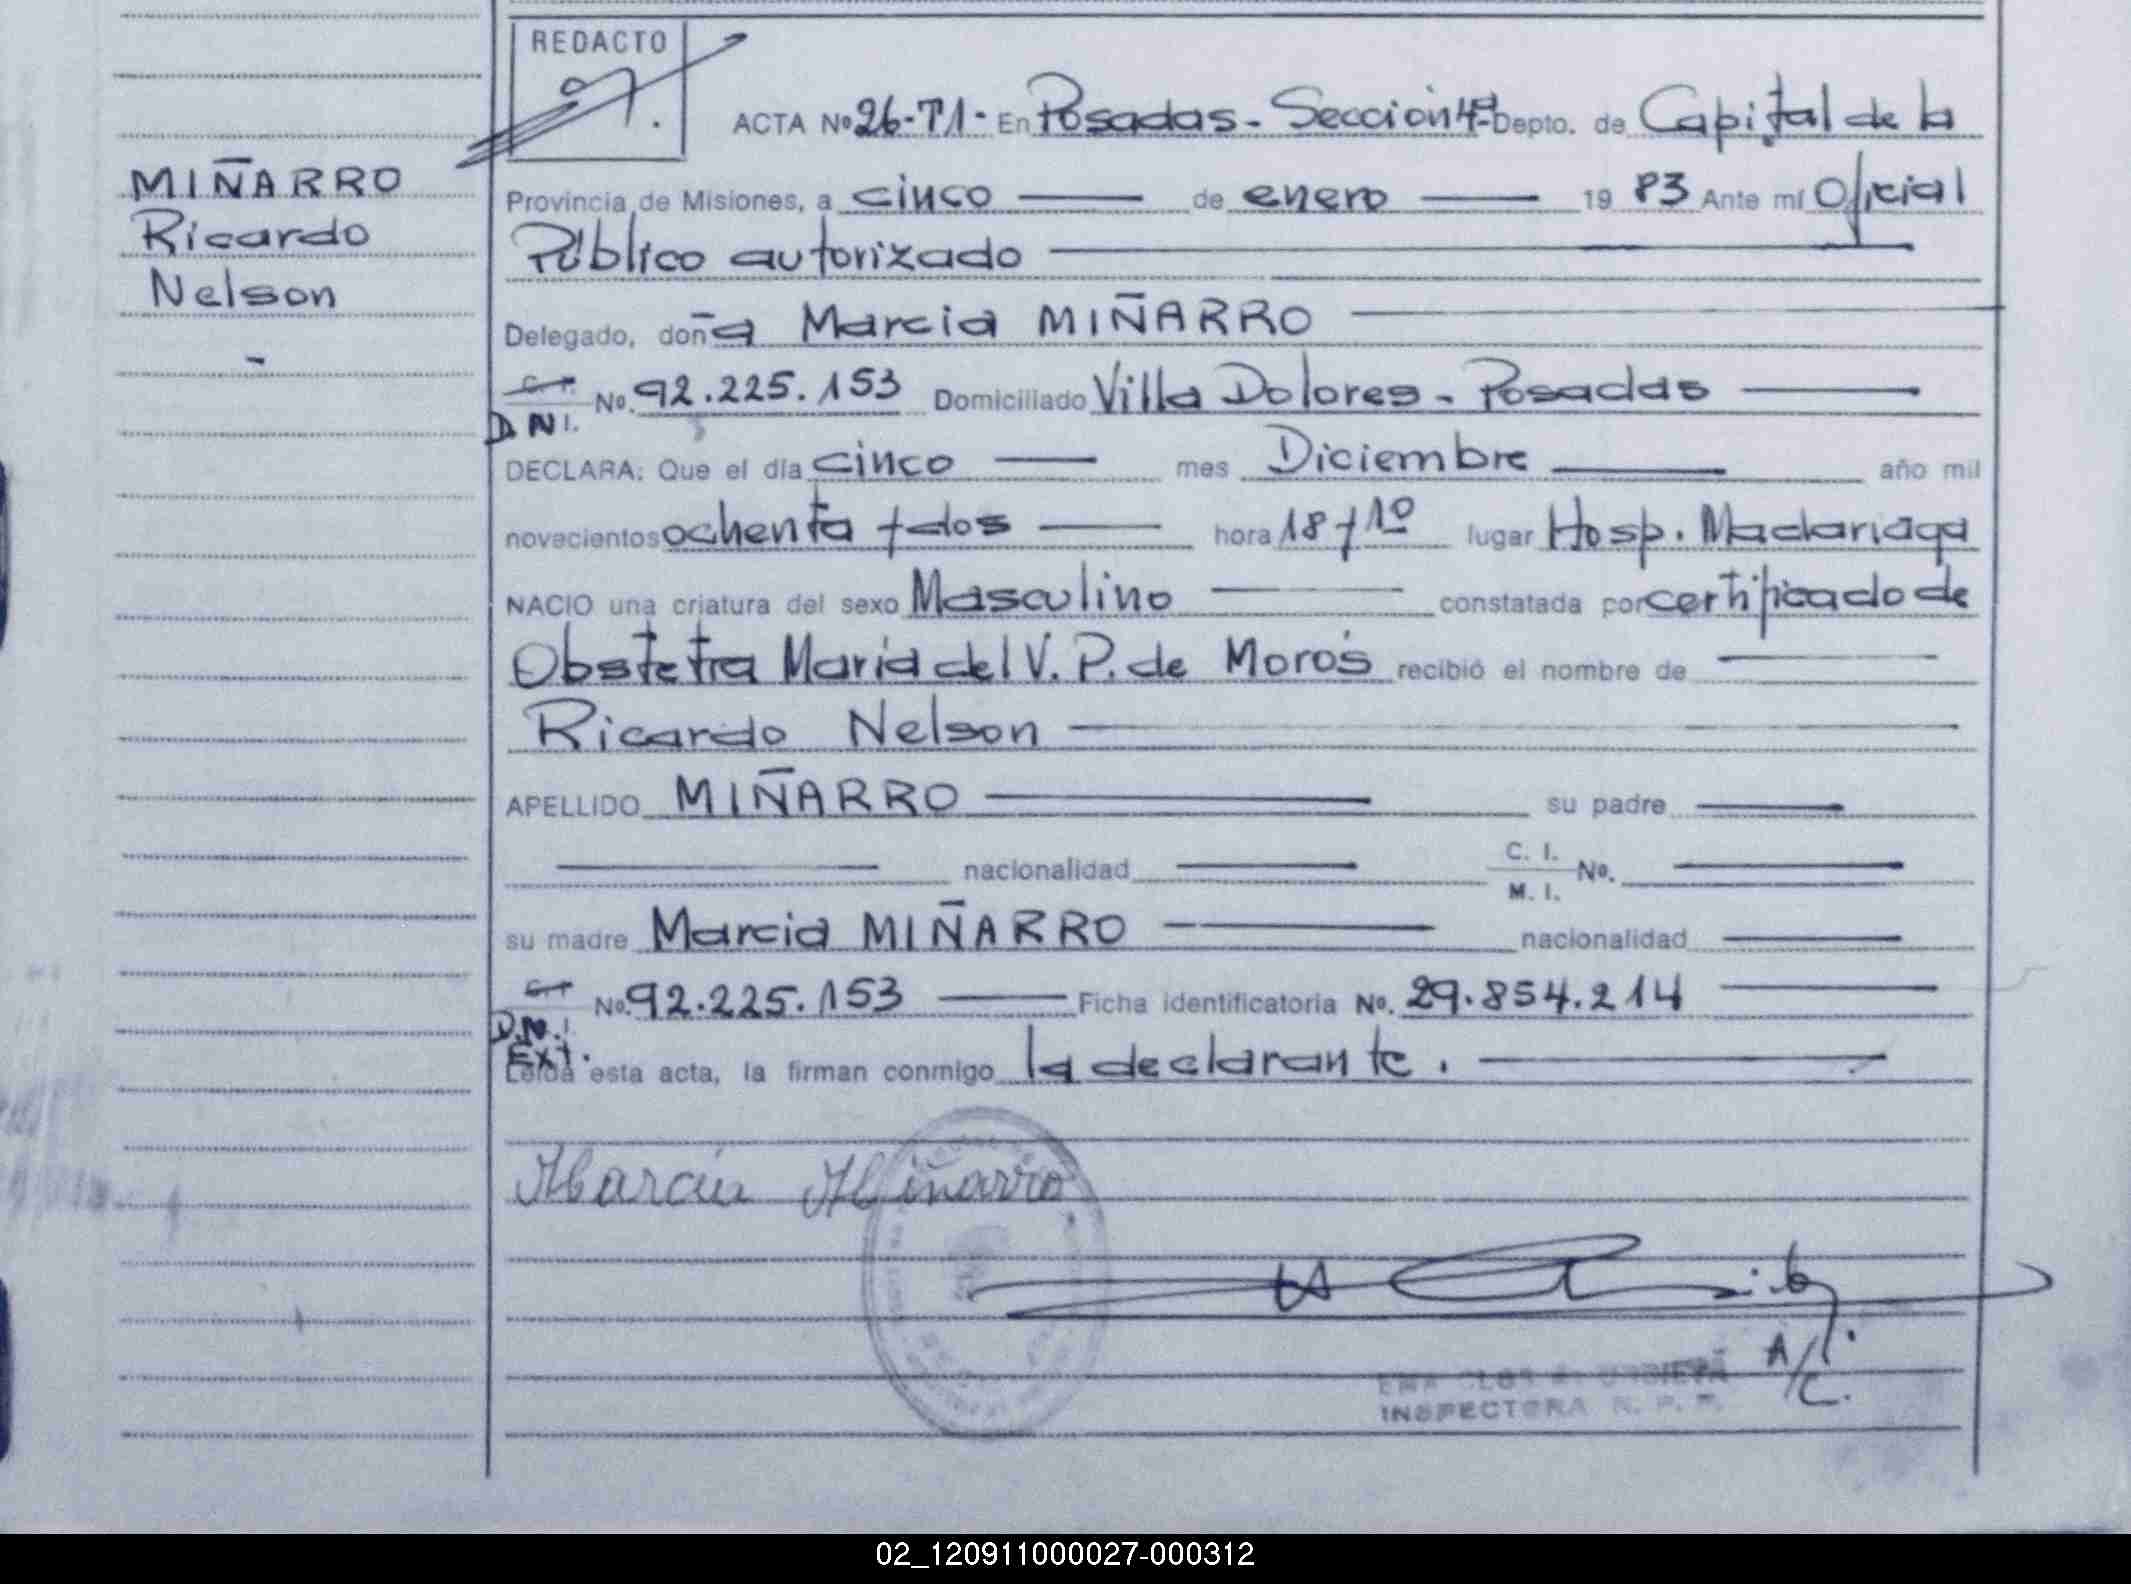 REDACTO
ACTA Nº 26-T1- En Posadas - Sección 4ª Depto. de Capital de la
MIÑARRO
Ricardo
Nelson
-
Provincia de Misiones, a cinco de enero 1983 Ante mí Oficial
Público autorizado
Delegado, doña Marcia MIÑARRO
C.I. Nº. 92.225.153 Domiciliado Villa Dolores - Posadas
D.N.I.
DECLARA: Que el día cinco mes Diciembre año mil
novecientos ochenta y dos hora 18 y 10 lugar Hosp. Madariaga
NACIO una criatura del sexo Masculino constatada por certificado de
Obstetra María del V. P. de Morós recibió el nombre de
Ricardo Nelson
APELLIDO MIÑARRO su padre
nacionalidad C. I. Nº.
M. I.
su madre Marcia MIÑARRO nacionalidad
C.I. Nº. 92.225.153 Ficha identificatoria Nº. 29.854.214
D.N.I.
Ext.
Leída esta acta, la firman conmigo la declarante.
Marcia Miñarro
A/C.
INSPECTORA R. P. P.
02_120911000027-000312